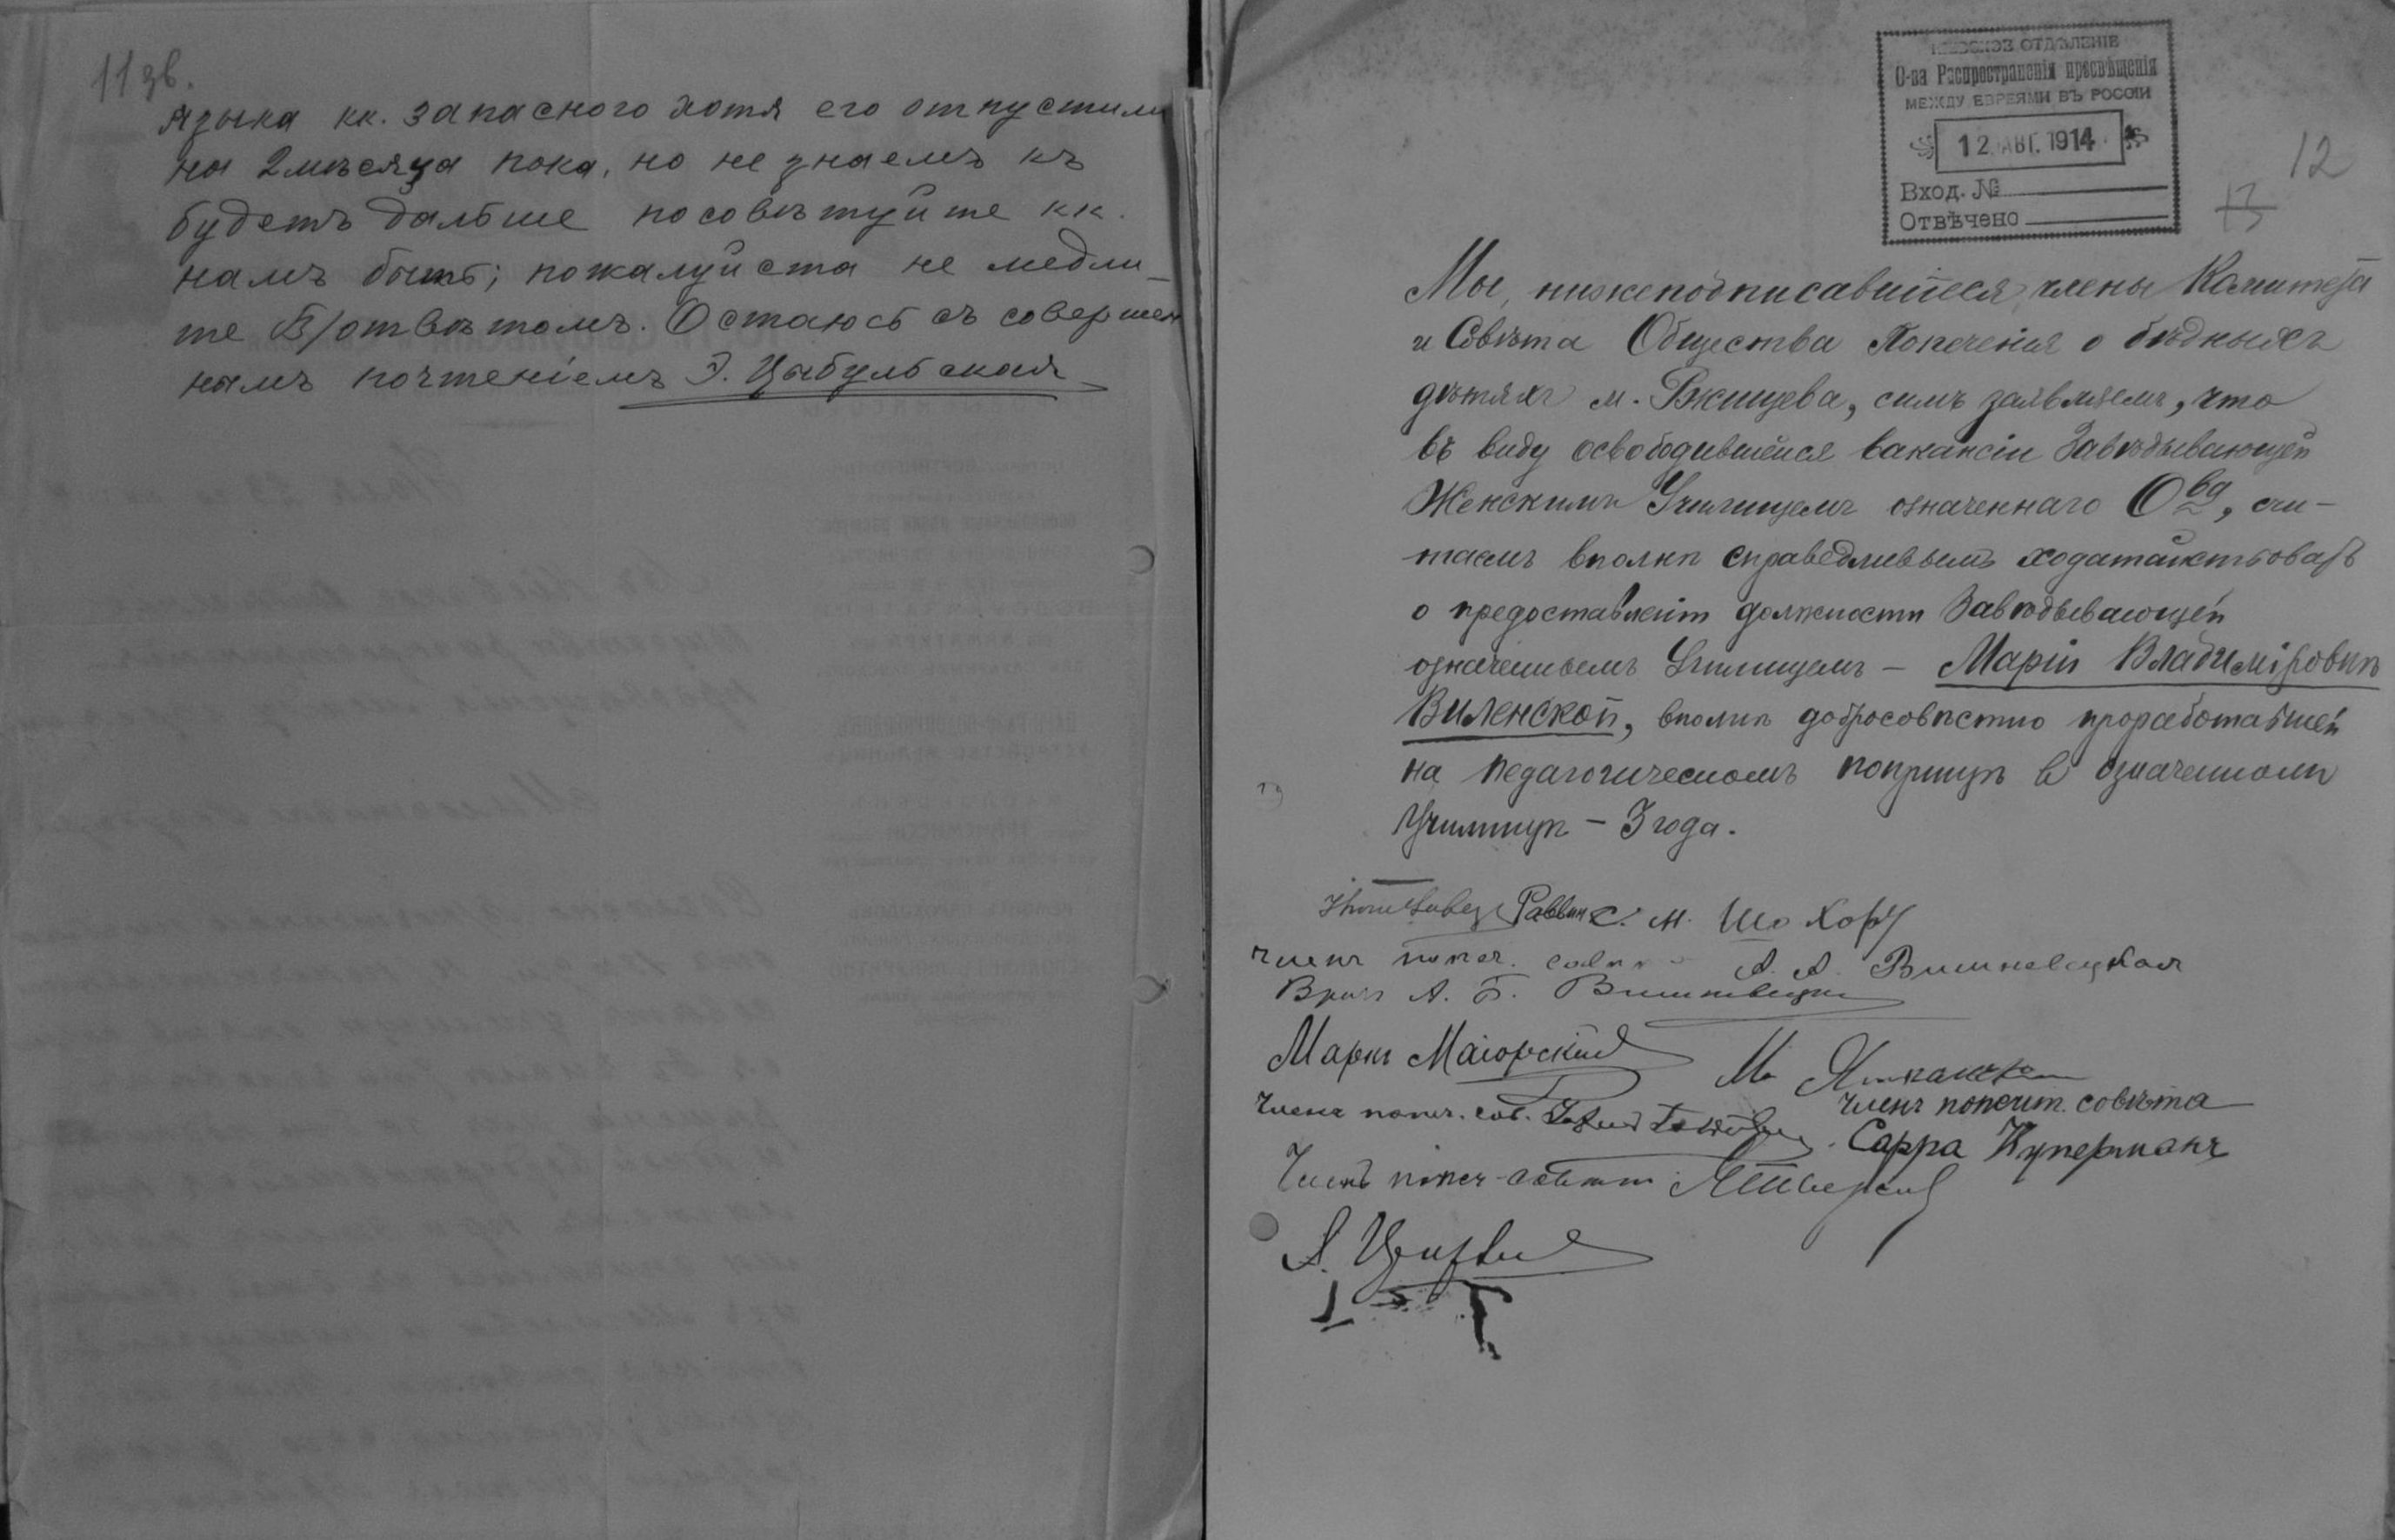 11 зв.
языка кк. запасного хотя его отпустили
на 2 мѣсяца пока, но не знаемъ къ
будетъ дальше посовѣтуйте кк.
намъ быть; пожалуйста не медли-
те В/отвѣтомъ. Остаюсь съ совершен
нымъ почтеніемъ Э. Цыбульская
КІЕВСКОЕ ОТДѢЛЕНІЕ
О-ва Распространенія просвѣщенія
МЕЖДУ ЕВРЕЯМИ ВЪ РОССІИ
12 АВГ. 1914
Вход. №
Отвѣчено
12
13
Мы, нижеподписавшіеся, члены Комитета
и Совѣта Общества Попеченія о бѣдныхъ
дѣтяхъ м. Ржищева, симъ заявляемъ, что
въ виду освободившейся вакансіи Завѣдывающей
Женскимъ Училищемъ означеннаго О-ва, счи-
таемъ вполнѣ справедливымъ ходатайствовать
о предоставленіи должности Завѣдывающей
означеннымъ Училищемъ – Маріи Владиміровнѣ
Виленской, вполнѣ добросовѣстно проработавшей
на педагогическомъ поприщѣ в означенномъ
Училищѣ – 3 года.
Раввин С. М. Шохоръ
Членъ попеч. совѣта А. А. Вишневецкая
Врачъ А. Б. Вишневецкій
Маркъ Маіорскій
М.
Членъ попеч. сов.
Членъ попечит. совѣта
Сарра Куперманъ
Членъ попеч. совѣта
А.